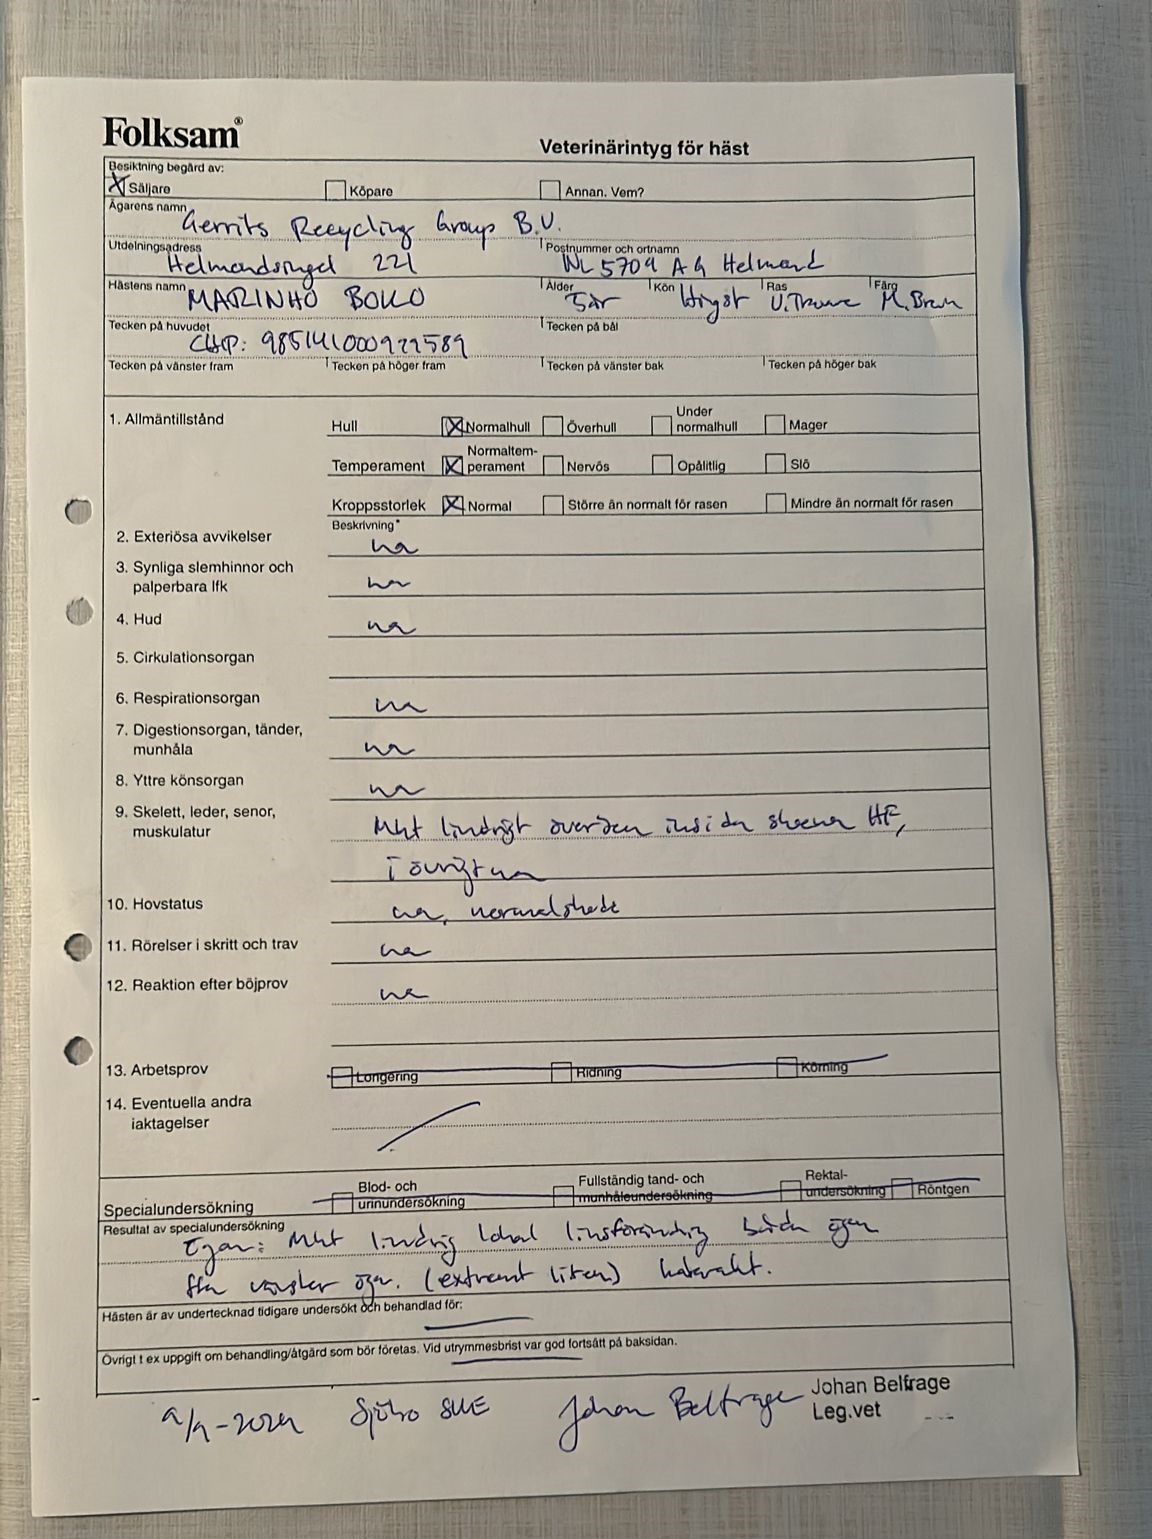 Folksam®
Veterinärintyg för häst
Besiktning begärd av:
X Säljare Köpare Annan. Vem?
Ägarens namn Gerrits Recycling Group B.V.
Utdelningsadress Helmondsingel 221 Postnummer och ortnamn NL 5709 AG Helmond
Hästens namn MARINHO BOKO Ålder 5år Kön Hingst Ras V.Travare Färg M.Brun
Tecken på huvudet Chip: 985141000977589 Tecken på bål
Tecken på vänster fram Tecken på höger fram Tecken på vänster bak Tecken på höger bak
1. Allmäntillstånd
Hull X Normalhull Överhull Under normalhull Mager
Temperament X Normaltem-perament Nervös Opålitlig Slö
Kroppsstorlek X Normal Större än normalt för rasen Mindre än normalt för rasen
Beskrivning*
2. Exteriösa avvikelser ua
3. Synliga slemhinnor och
palperbara lfk ua
4. Hud ua
5. Cirkulationsorgan
6. Respirationsorgan ua
7. Digestionsorgan, tänder,
munhåla ua
8. Yttre könsorgan ua
9. Skelett, leder, senor,
muskulatur Mkt lindrigt överben insidan skenan HF,
i övrigt ua
10. Hovstatus ua, normalskodd
11. Rörelser i skritt och trav ua
12. Reaktion efter böjprov ua
13. Arbetsprov Longering Ridning Körning
14. Eventuella andra
iaktagelser
Specialundersökning Blod- och urinundersökning Fullständig tand- och munhåleundersökning Rektal-undersökning Röntgen
Resultat av specialundersökning
Ögon: Mkt lindrig lokal linsförändring båda ögon
ffa vänster öga. (extremt liten) katarakt.
Hästen är av undertecknad tidigare undersökt och behandlad för:
Övrigt t ex uppgift om behandling/åtgärd som bör företas. Vid utrymmesbrist var god fortsätt på baksidan.
Sjöbo SWE Johan Belfrage Johan Belfrage
Leg.vet